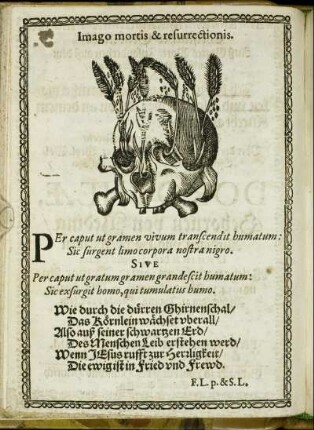 Imago mortis & resurrectionis.
PEr caput ut gramen vivum transcendit humatum:
Sic surgent limo corpora nostra nigro.
SIVE
Per caput ut gratum gramen grandescit humatum:
Sic exsurgit homo, qui tumulatus humo.
Wie durch die dürren Ghirnenschal/
Das Körnlein wächset vberall/
Also auß seiner schwartzen Erd/
Des Menschen Leib erstehen werd/
Wenn JEsus rufft zur Herzligkeit/
Die ewig ist in Fried vnd Frewd.
F. L. p. & S. L.